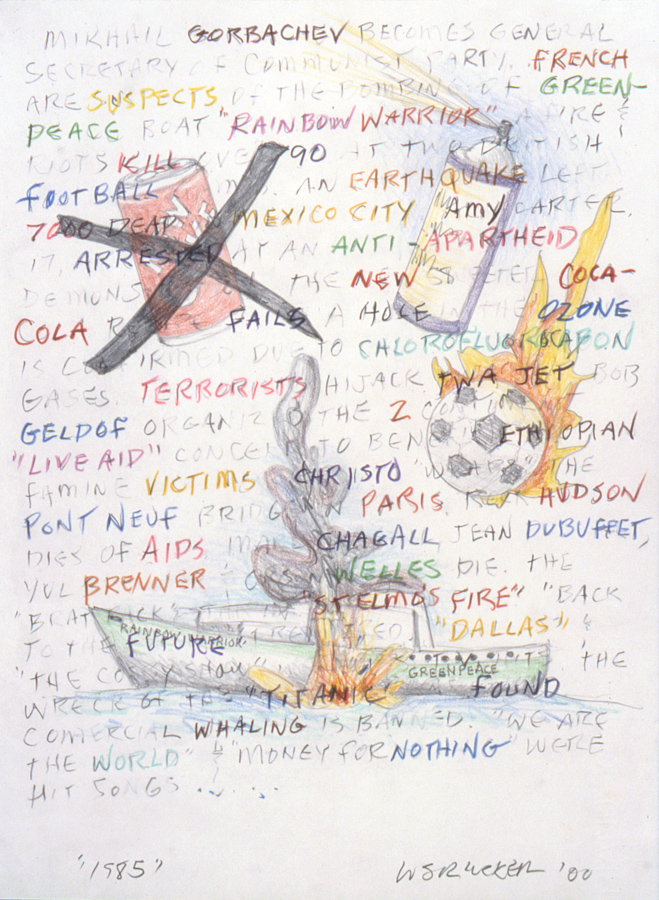 MIKHAIL GORBACHEV BECOMES GENERAL
SECRETARY OF COMMUNIST PARTY. FRENCH
ARE SUSPECTS OF THE BOMBING OF GREEN-
PEACE BOAT "RAINBOW WARRIOR" A FIRE &
RIOTS KILL OVER 90 AT TWO BRITISH
FOOTBALL AN EARTHQUAKE LEFT
7000 DEAD IN MEXICO CITY. AMY CARTER,
17, ARRESTED AT AN ANTI-APARTHEID
DEMONS THE NEW SWEETER COCA-
COLA FAILS. A HOLE IN THE OZONE
IS CONFIRMED DUE TO CHLOROFLUOROCARBON
GASES. TERRORISTS HIJACK TWA JET. BOB
GELDOF ORGANIZED THE 2 CONTINENT
"LIVE AID" CONCERT TO BENEFIT ETHIOPIAN
FAMINE VICTIMS CHRISTO "WRAPS" THE
PONT NEUF BRIDGE IN PARIS. ROCK HUDSON
DIES OF AIDS. MARC CHAGALL, JEAN DUBUFFET,
YUL BRENNER & ORSON WELLES DIE. THE
"BRAT PACK'S" "ST ELMO'S FIRE" "BACK
TO THE FUTURE "DALLAS" &
"THE COSBY SHOW" THE
WRECK OF THE "TITANIC" FOUND
COMERCIAL WHALING IS BANNED. "WE ARE
THE WORLD" & "MONEY FOR NOTHING" WERE
HIT SONGS .....
RAINBOW WARRIOR
GREENPEACE
"1985" WSRUCKER '00